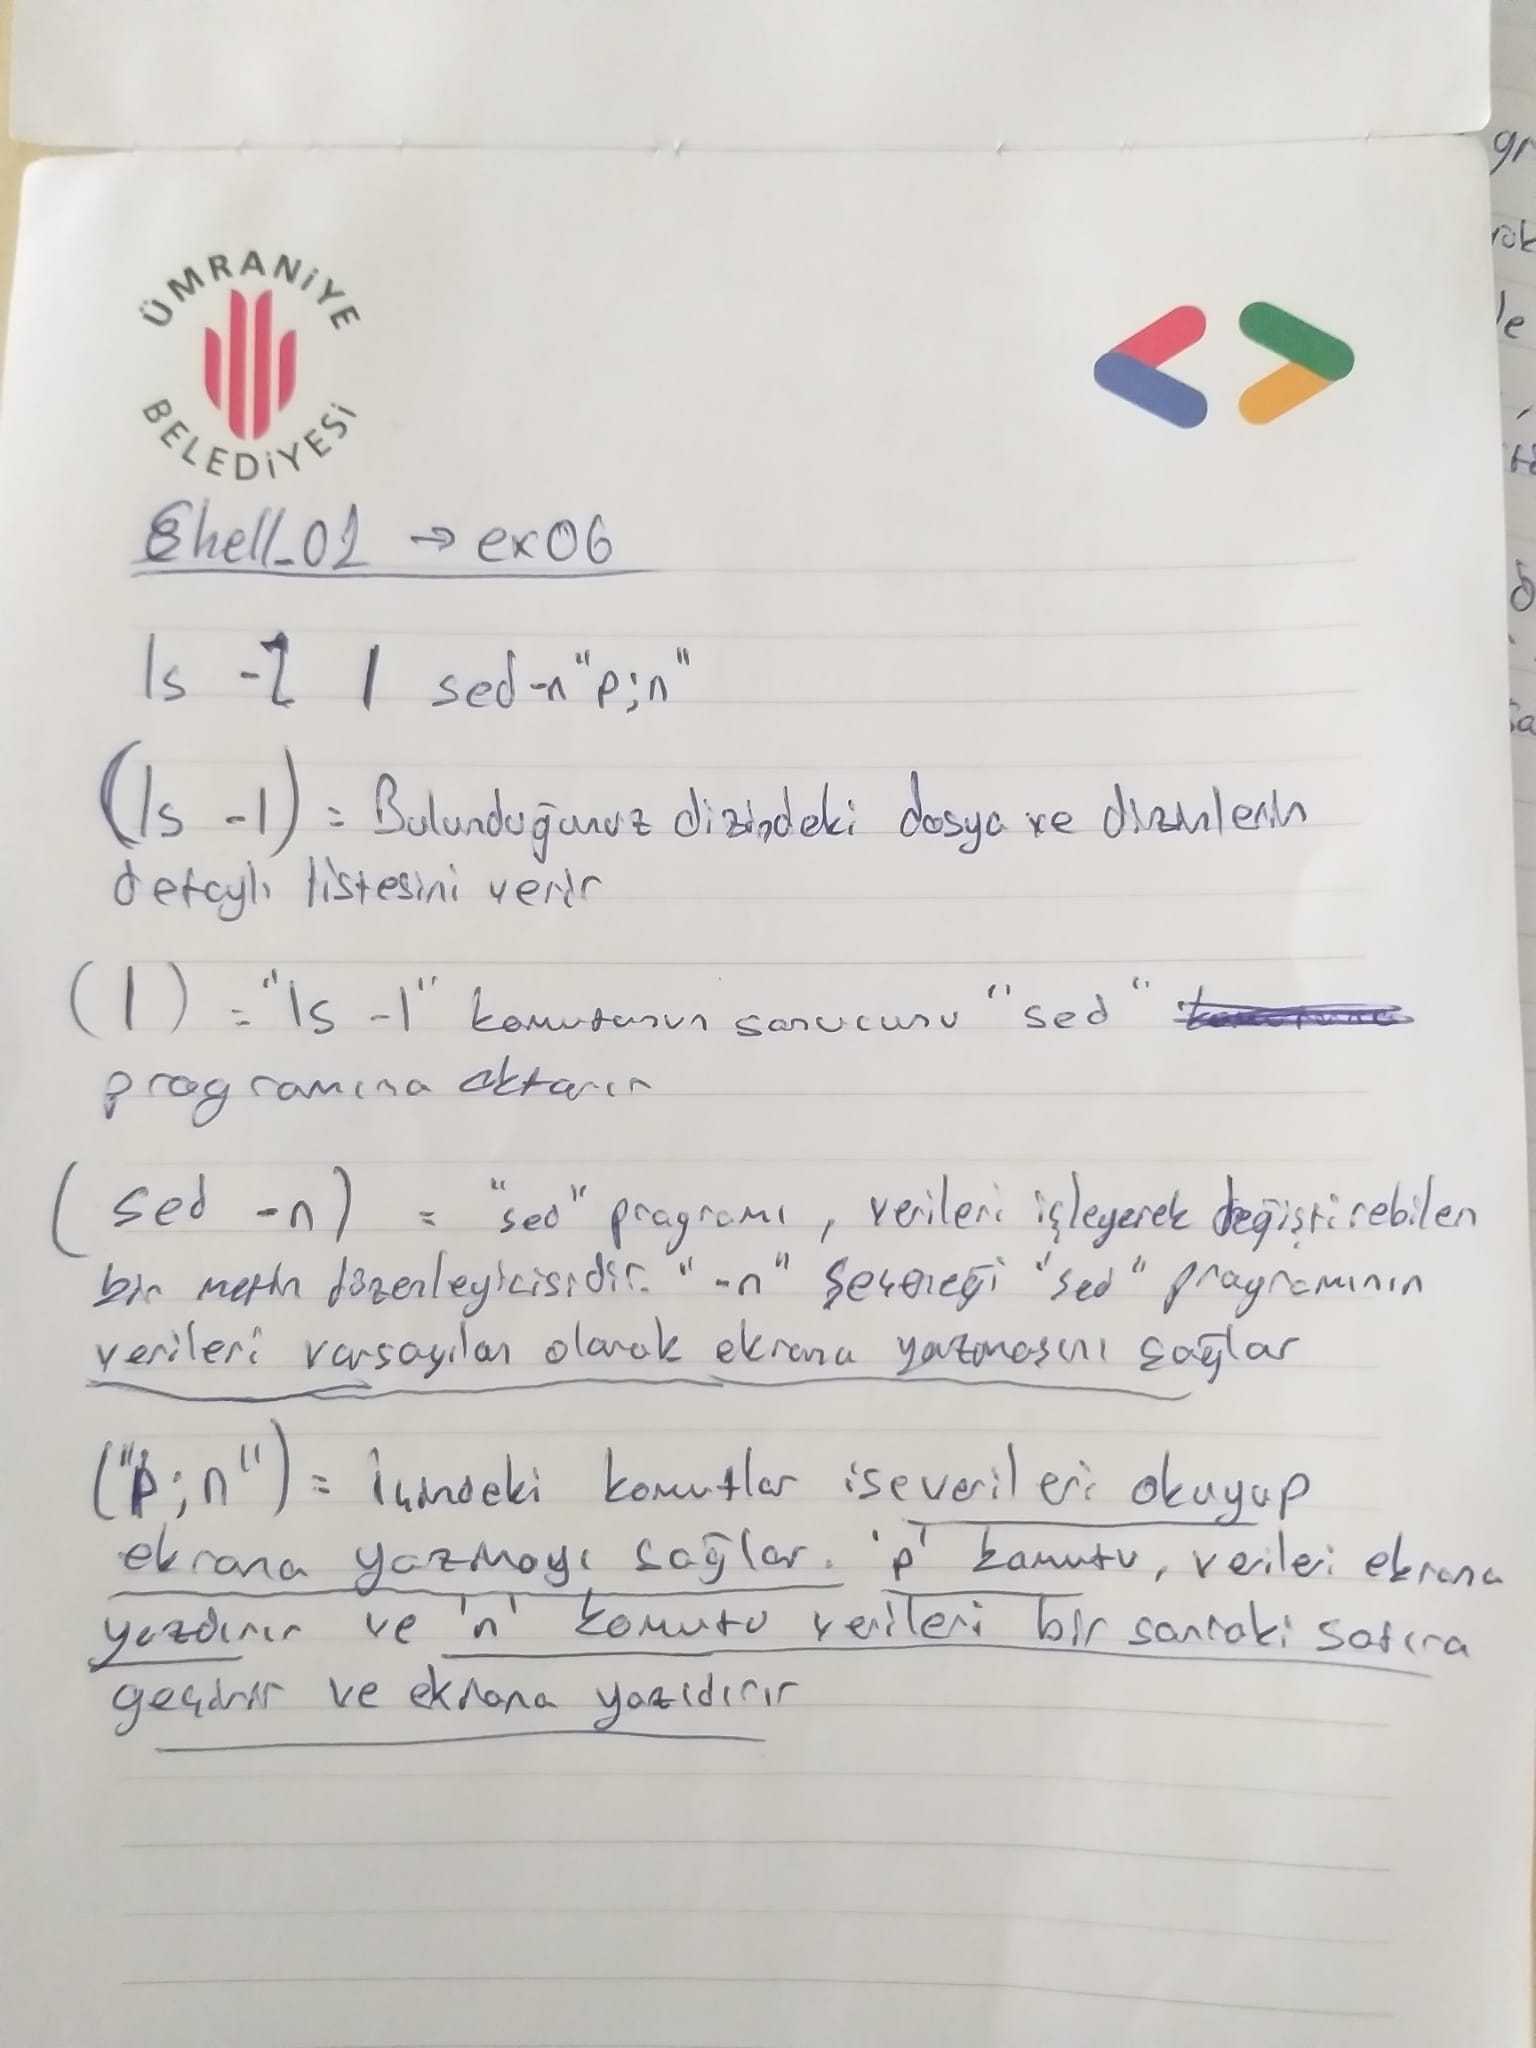 ÜMRANİYE
BELEDİYESİ
Shell_01 → ex06
ls -l | sed -n "p;n"
(ls -l) = Bulunduğunuz dizindeki dosya ve dizinlerin
detaylı listesini verir
(|) = "ls -l" komutunun sonucunu "sed"
programına aktarır
(sed -n) = "sed" programı, verileri işleyerek değiştirebilen
bir metin düzenleyicisidir. "-n" seçeneği "sed" programının
verileri varsayılan olarak ekrana yazmasını sağlar
("p;n") = İçindeki komutlar ise verileri okuyup
ekrana yazmayı sağlar. 'p' komutu, verileri ekrana
yazdırır ve 'n' komutu verileri bir sonraki satıra
geçirir ve ekrana yazıdırır